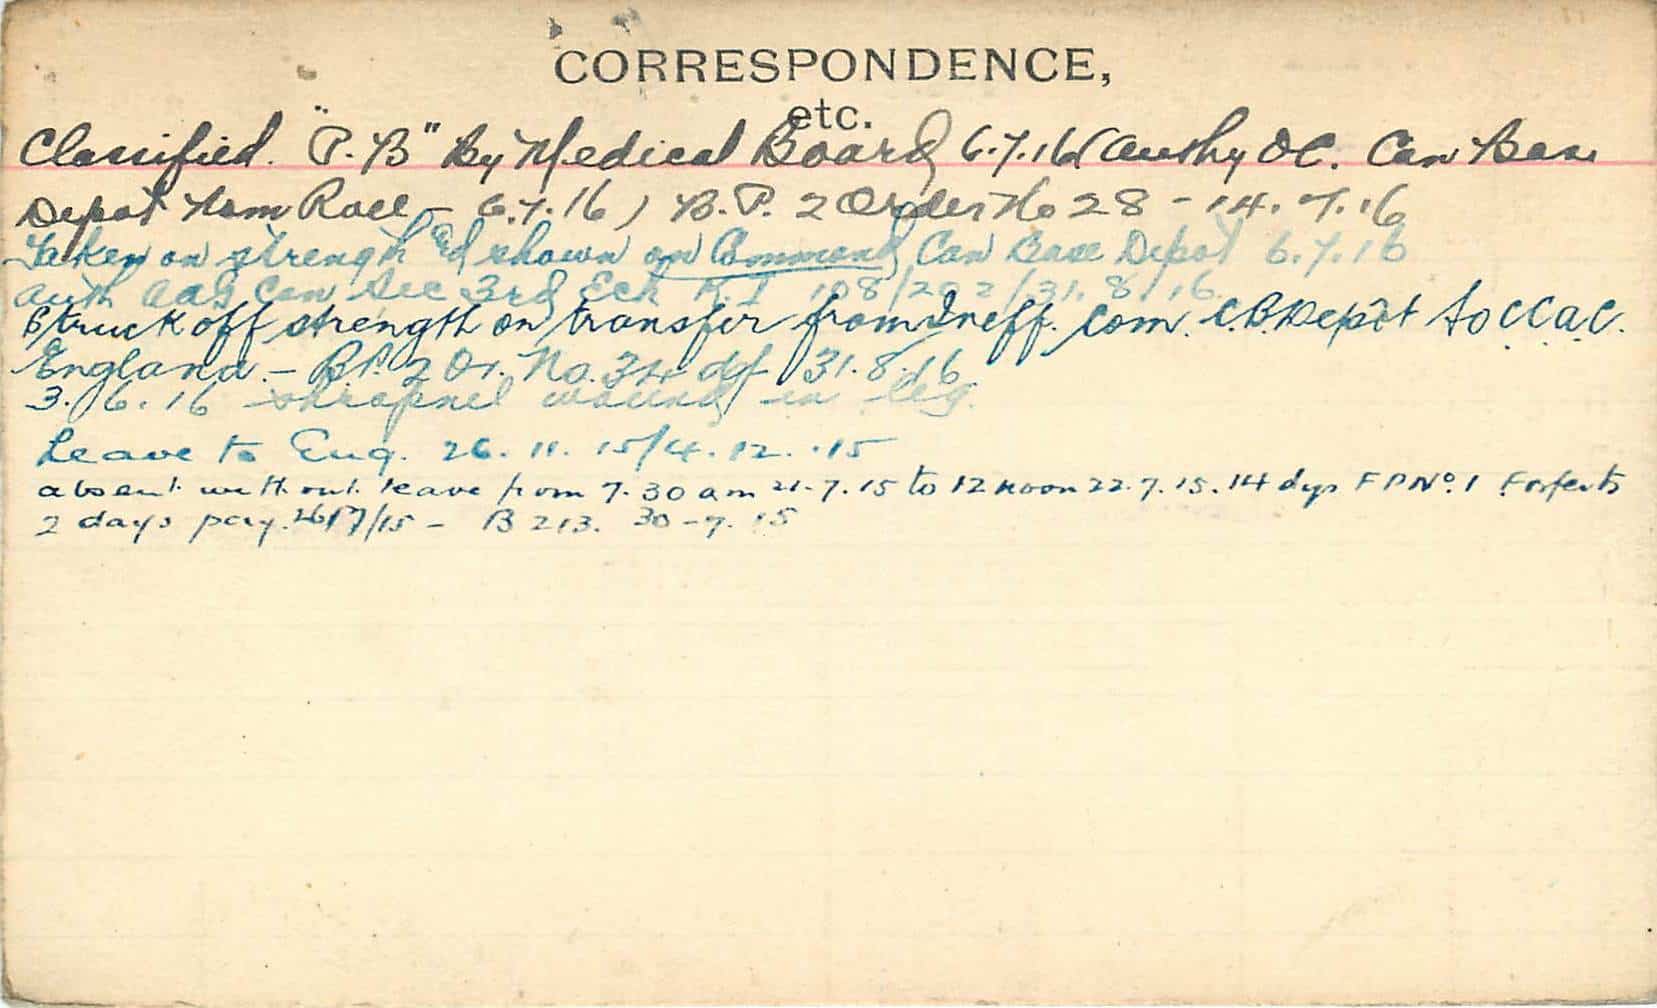 CORRESPONDENCE,
etc.
Classified. "P.B" By Medical Board 6.7.16 (Authy OC. Can Base
Depot Nom Roll - 6.7.16) B.P. 2 Order No 28 - 14.7.16
Taken on strength & shown on Command Can Base Depot 6.7.16
Auth AAG Can Sec 3rd Ech R.I 108/202/31.8/16
Struck off strength on transfer from Ineff. Com. C.B.Depot to C.C.A.C.
England. - Bt. 2 Or. No. 34 of 31.8.16
3.6.16 shrapnel wound in leg.
Leave to Eng. 26.11.15/4.12.15
absent without leave from 7.30 am 21.7.15 to 12 noon 22.7.15. 14 dys FPNo. 1 Forfeits
2 days pay. 26/7/15 - B 213. 30-7.15